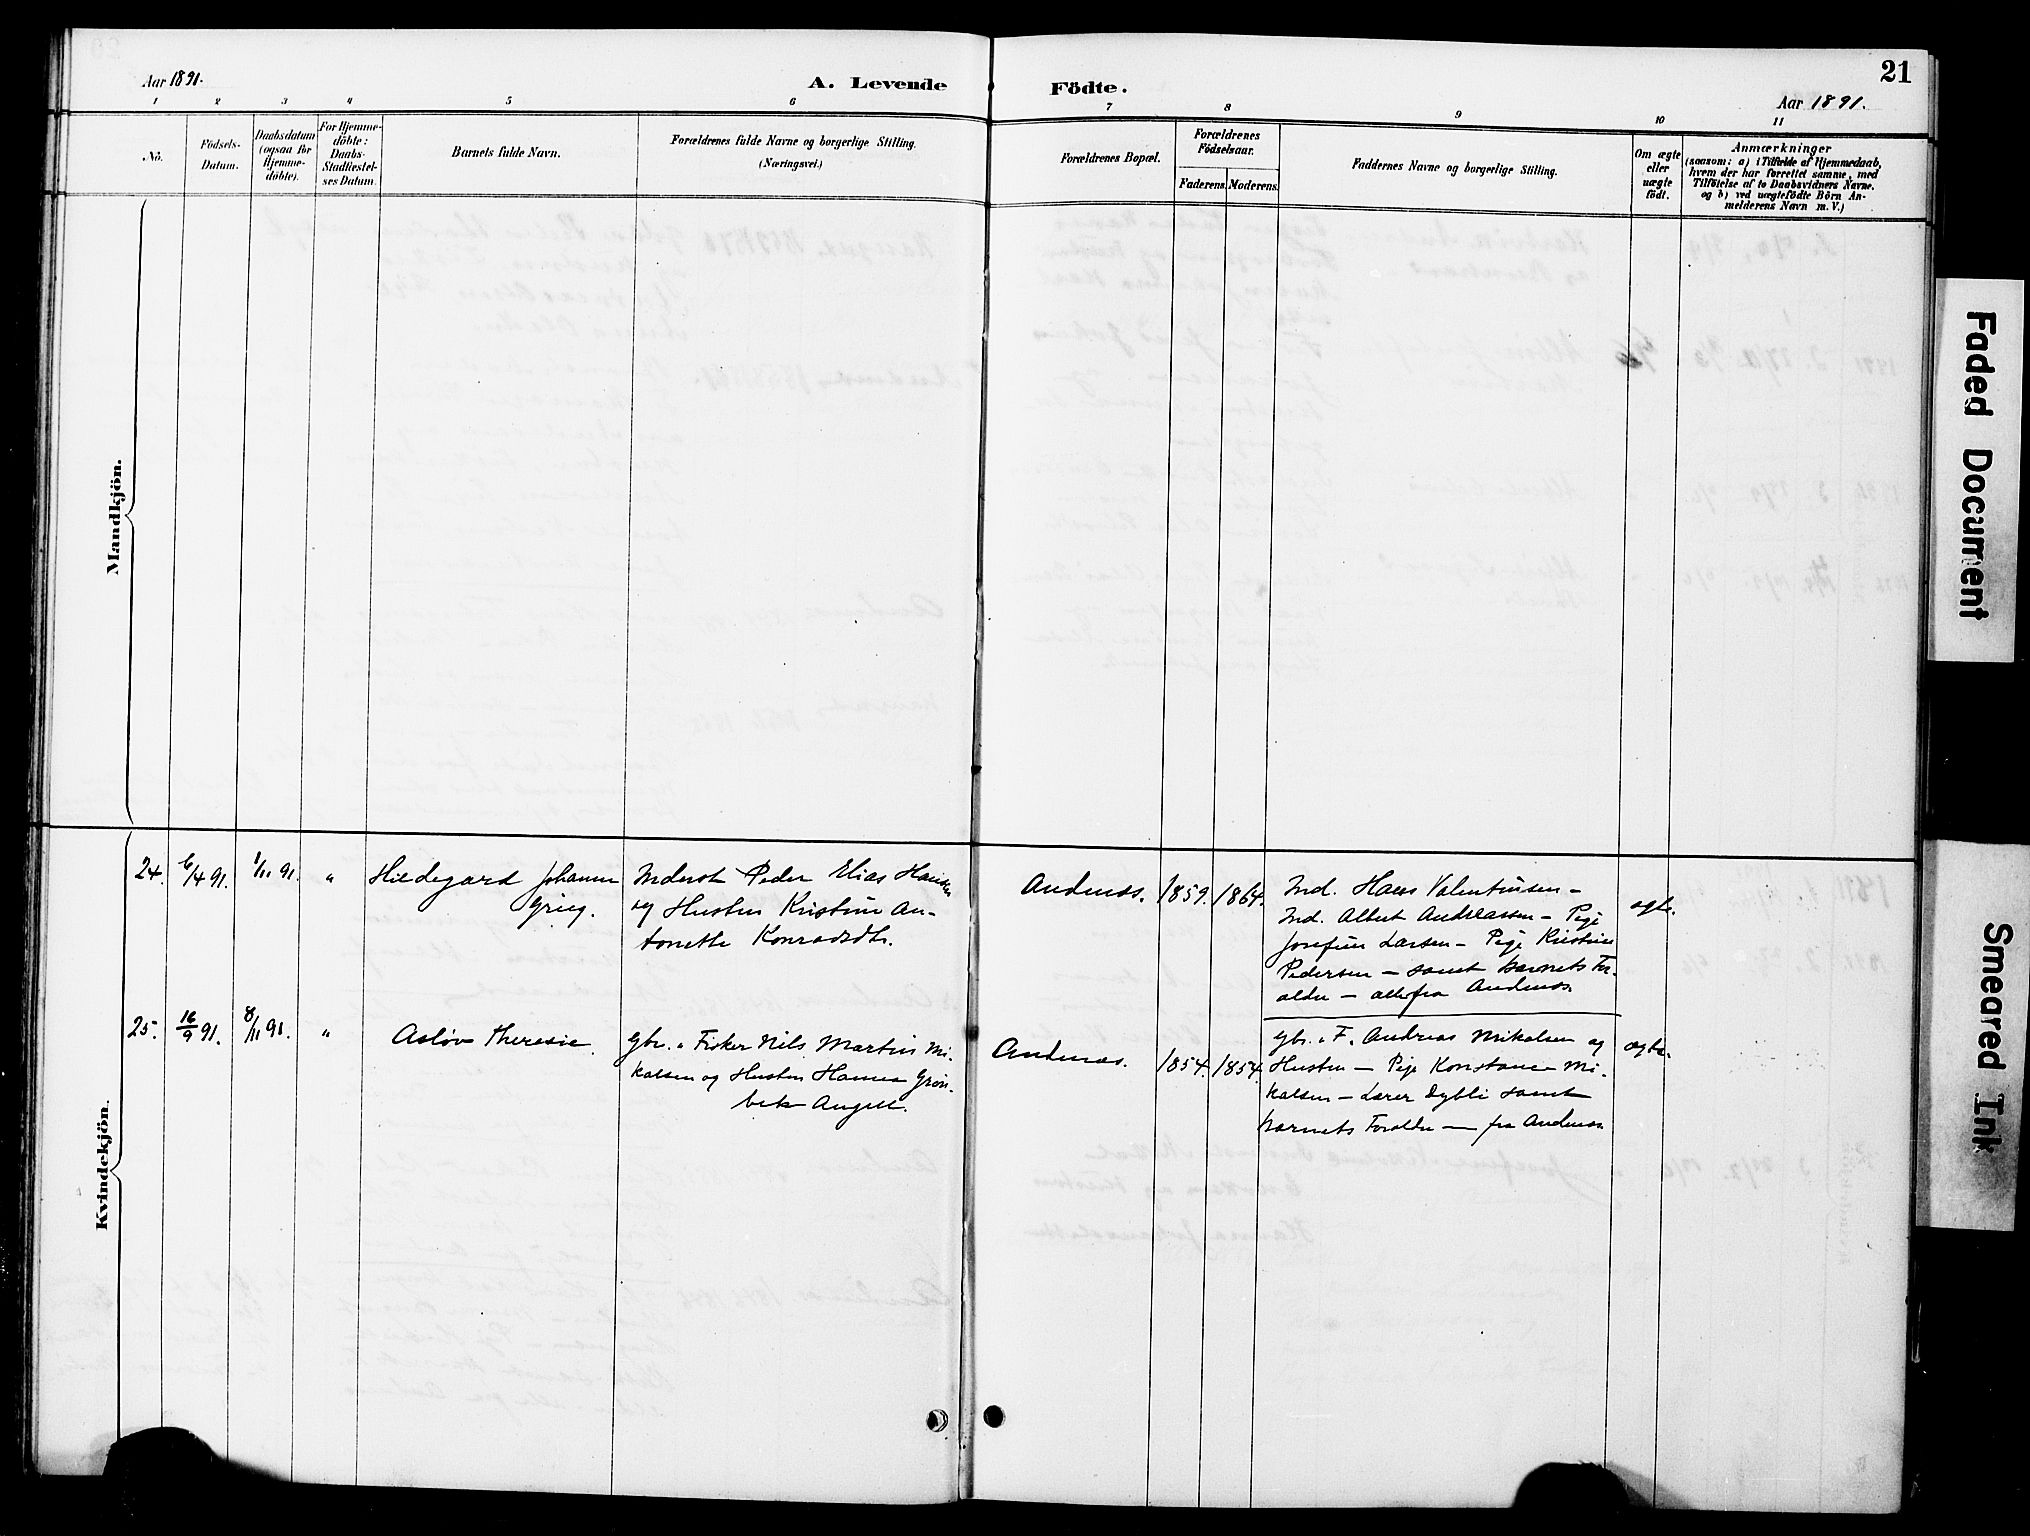 21
Aar 1891.
A. Levende Födte.
Aar 1891.
1 2 3 4 5 6 7 8 9 10 11
No.
Födsels-
Datum.
Daabsdatum
(ogsaa for
Hjemme-
döbte).
For Hjemme-
döbte:
Daabs-
Stadfæstel-
ses Datum.
Barnets fulde Navn.
Forældrenes fulde Navne og borgerlige Stilling.
(Næringsvei.)
Forældrenes Bopæl.
Forældrenes
Födselsaar.
Faderens. Moderens.
Faddernes Navne og borgerlige Stilling.
Om ægte
eller
uægte
födt.
Anmærkninger
(saasom: a) i Tilfælde af Hjemmedaab,
hvem der har forrettet samme, med
Tilföielse af to Daabsvidners Navne.
og b) ved uægtefödte Börn An-
melderens Navn m. V.)
Mandkjön.
Kvindekjön.
24.
6/4 91.
1/11 91.
"
Hildegard Johanne
Grieg.
Inderst Peder Elias Hansen
og Hustru Kristine An-
tonette Konradsdtr.
Andenæs.
1859.
1864.
Ind. Hans Valentinsen –
Ind. Albert Andreassen – Pige
Josefine Larsen – Pige Kristine
Pedersen – samt barnets For-
ældre – alle fra Andenæs.
ægte.
25.
16/9 91.
8/11 91.
"
Asløv Theresie.
Gbr. " Fisker Nils Martin Mi-
kalsen og Hustru Hanna Grøn-
bek Angell.
Andenæs.
1854.
1854.
Gbr. " F. Andreas Mikalsen og
Hustru – Pige Konstance Mi-
kalsen – Lærer Dybli samt
barnets Forældre – fra Andenæs.
ægte.
Faded Document
Smeared Ink